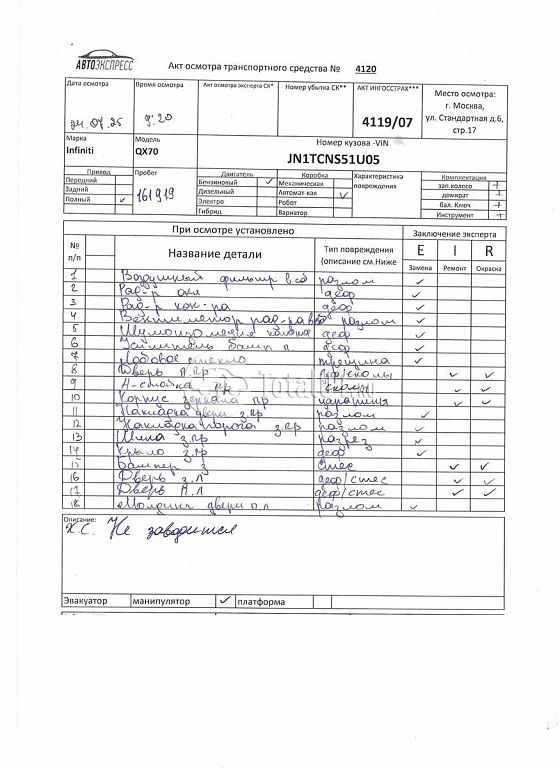 АВТОЭКСПРЕСС
Акт осмотра транспортного средства № 4120
Дата осмотра Время осмотра Акт осмотра эксперта СК* Номер убытка СК** АКТ ИНГОССТРАХ*** Место осмотра:
24.07.25 9:20 4119/07 г. Москва,
ул. Стандартная д.6,
стр.17
Марка Модель Номер кузова -VIN
Infiniti QX70 JN1TCNS51U05
Привод Пробег Двигатель Коробка Характеристика повреждения Комплектация
Передний 161919 Бензиновый ✓ Механическая зап.колесо +
Задний Дизельный Автомат-кая ✓ домкрат +
Полный ✓ Электро Робот бал. Ключ +
Гибрид Вариатор Инструмент +
При осмотре установлено Заключение эксперта
№ п/п Название детали Тип повреждения (описание см.Ниже E I R
Замена Ремонт Окраска
1 Воздушный фильтр в сб разлом ✓
2 Рад-р акп дефор ✓
3 Рад-р кон-ра дефор ✓
4 Вентилятор рад-ра разлом ✓
5 Шумоизоляция капота деф ✓
6 Усилитель бамп п. деф ✓
7 Лобовое стекло трещина ✓
8 Дверь п.пр деф/сколы ✓ ✓
9 А-стойка пр сколы ✓ ✓
10 Корпус зеркала пр царапина ✓ ✓
11 Накладка двери з.пр разлом ✓
12 Накладка порога з.пр разлом ✓
13 Шина з.пр разрез ✓
14 Крыло з.пр деф ✓
15 Бампер з стес ✓ ✓
16 Дверь з.л деф/стес ✓ ✓
17 Дверь п.л деф/стес ✓ ✓
18 Молдинг двери п.л разлом ✓
Описание:
Х.С. Не заводится
Эвакуатор манипулятор ✓ платформа